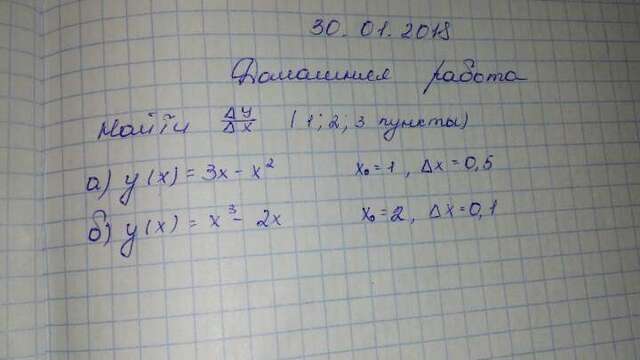 30. 01. 2018
Домашняя работа
Найти Δy/Δx (1; 2; 3 пункты)
а) y(x) = 3x - x² x₀ = 1, Δx = 0,5
б) y(x) = x³ - 2x x₀ = 2, Δx = 0,1